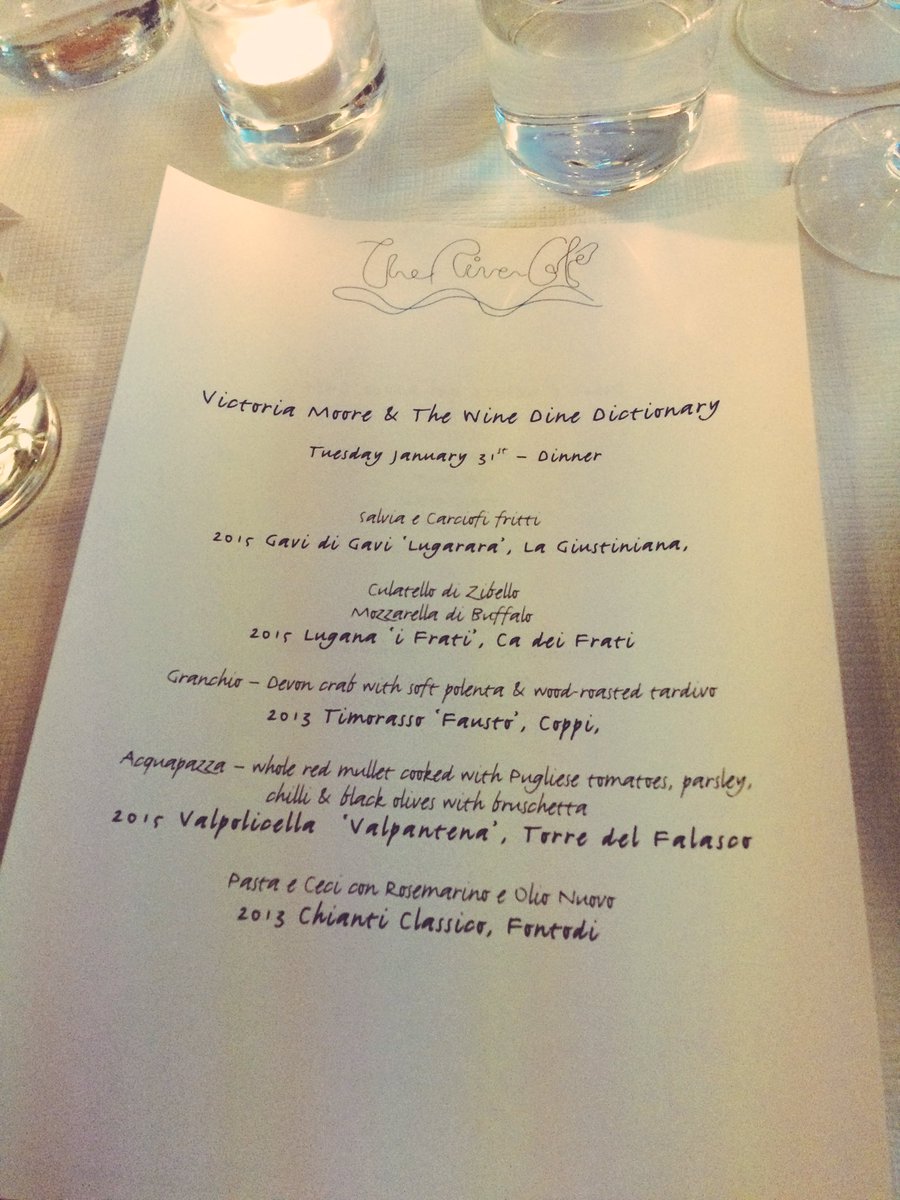 The River Cafe
Victoria Moore & The Wine Dine Dictionary
Tuesday January 31st – Dinner
Salvia e Carciofi fritti
2015 Gavi di Gavi 'Lugarara', La Giustiniana,
Culatello di Zibello
Mozzarella di Buffalo
2015 Lugana 'i Frati', Ca dei Frati
Granchio – Devon crab with soft polenta & wood-roasted tardivo
2013 Timorasso 'Fausto', Coppi,
Acquapazza – whole red mullet cooked with Pugliese tomatoes, parsley,
chilli & black olives with bruschetta
2015 Valpolicella 'Valpantena', Torre del Falasco
Pasta e Ceci con Rosemarino e Olio Nuovo
2013 Chianti Classico, Fontodi